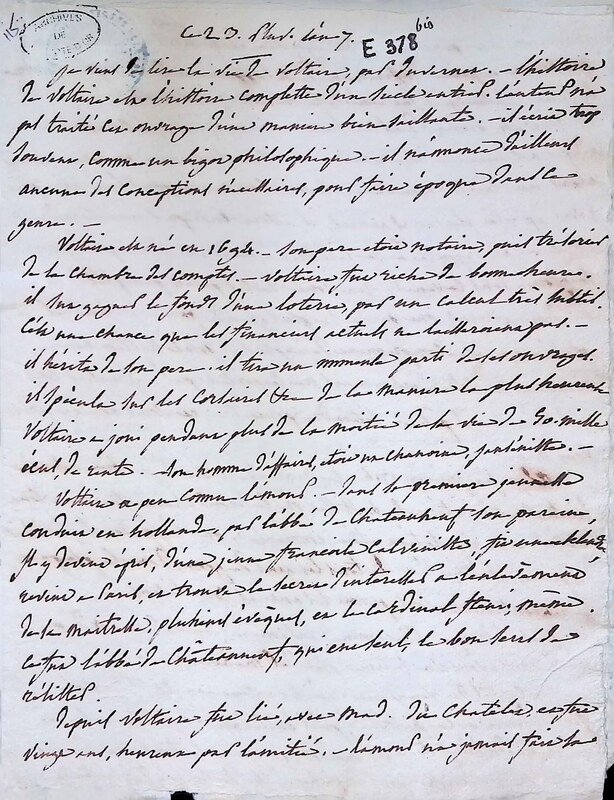 115.
ARCHIVES
DE
ce 23. Pluv. l'an 7.
E 378 bis
je viens de lire la vie de Voltaire, par Duvernet. - l'histoire
de Voltaire est l'histoire complette d'un siècle entier. l'auteur n'a
pas traité cet ouvrage d'une maniere bien saillante. - il écrit trop
souvent, comme un bigot philosophique. - il n'annonce d'ailleurs
aucune des conceptions nécessaires, pour faire époque dans ce
genre. -
Voltaire est né en 1694. - son pere etoit notaire, puis trésorier
de la chambre des comptes. - Voltaire fut riche de bonne heure.
il sut gagner le fonds d'une loterie, par un calcul très subtil.
C'est une chance que les financiers actuels ne laisseroient pas. -
il hérita de son pere. il tira un immense parti de ses ouvrages.
il spécula sur les corsaires de la maniere la plus heureuse
Voltaire a joui pendant plus de la moitié de sa vie de 50. mille
écus de rente. - son homme d'affaires, etoit un chanoine, janséniste. -
Voltaire a peu connu l'amour. - dans sa premiere jeunesse
conduit en hollande, par l'abbé de Chateauneuf son parein,
il y devint épris, d'une jeune françoise calviniste,
revint a Paris, et trouva le secret d'interesser a l'enlèvement
de sa maitresse, plusieurs évèques, et le cardinal fleuri, même.
ce fut l'abbé de Châteauneuf, qui eut seul, le bon sens de
résister.
depuis Voltaire fut lié, avec Mad. du Chatelet, et fut
vingt ans, heureux par l'amitié. - l'amour n'a jamais fait la